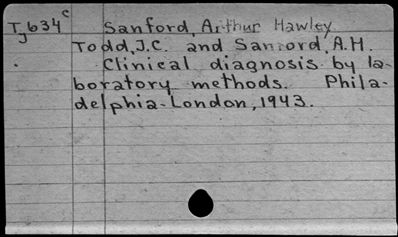 TJ634c Sanford, Arthur Hawley
Todd, J.C. and Sanford, A.H.
Clinical diagnosis by la-
boratory methods. Phila-
delphia-London, 1943.